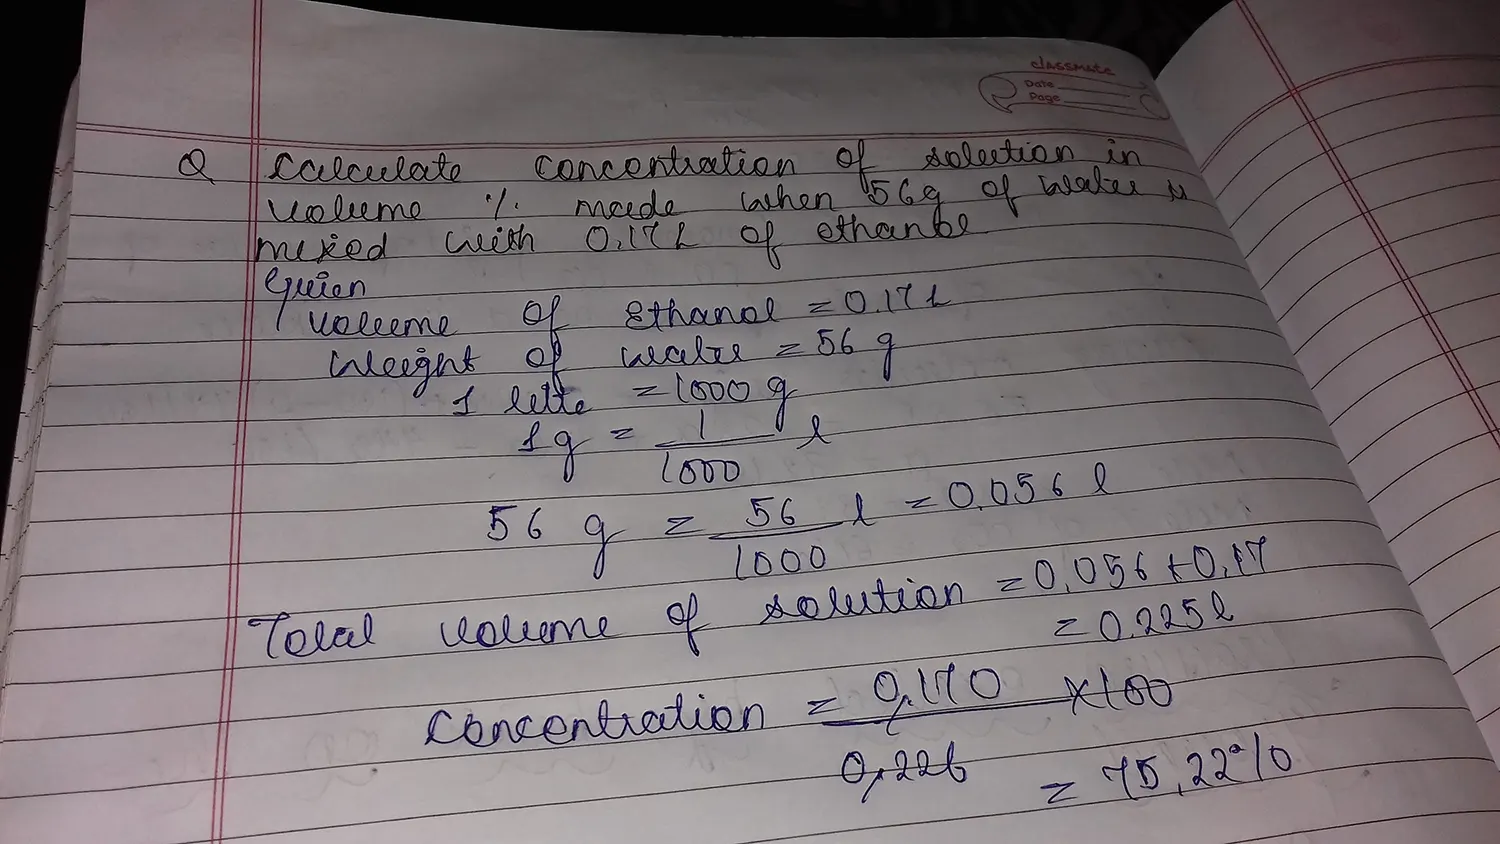 classmate
Date
Page
Q Calculate concentration of solution in
volume % made when 56g of water is
mixed with 0.17L of ethanol
Given
volume of Ethanol = 0.17 L
Weight of water = 56 g
1 litre = 1000 g
1g = 1/1000 l
56 g = 56/1000 l = 0.056 l
Total volume of solution = 0.056 + 0.17
= 0.225l
Concentration = 0.170/0.226 × 100
= 75.22%